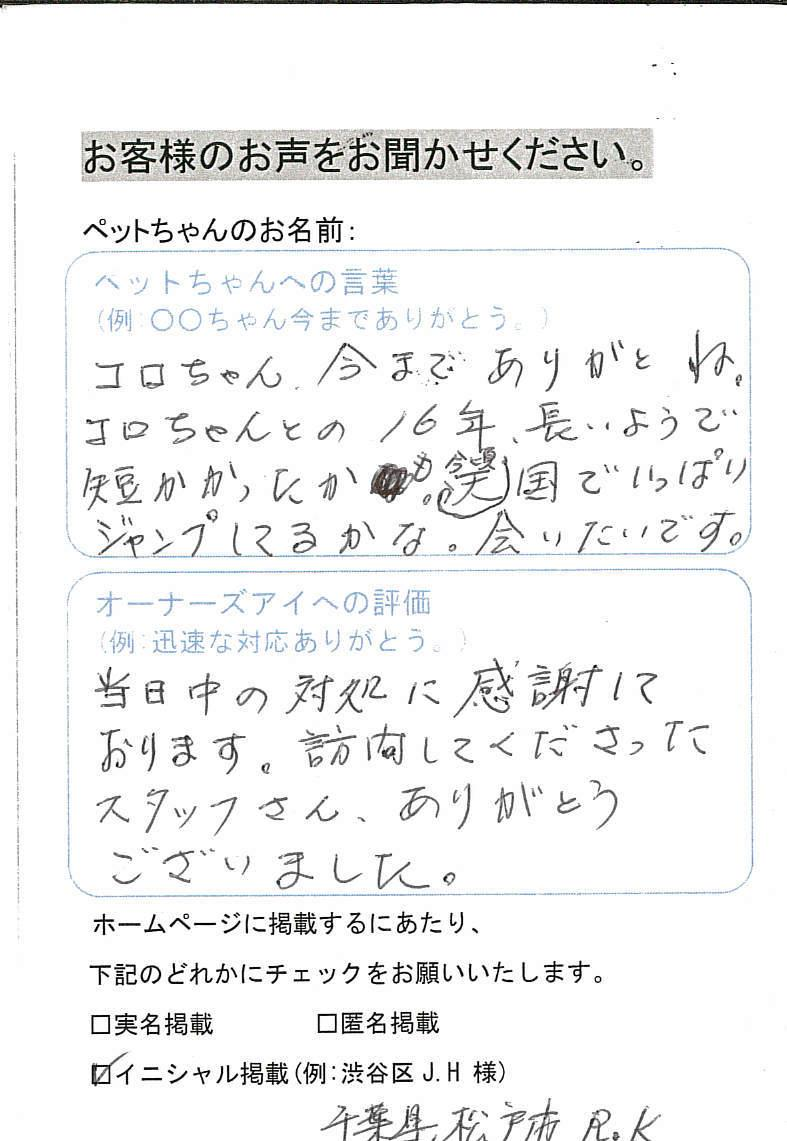 お客様のお声をお聞かせください。
ペットちゃんのお名前:
ペットちゃんへの言葉
(例:〇〇ちゃん今までありがとう。)
コロちゃん、今まで ありがと ね。
コロちゃんとの 16年、長いようで
短かかったかも。今頃天国でいっぱい
ジャンプしてるかな。会いたいです。
オーナーズアイへの評価
(例:迅速な対応ありがとう。)
当日中の対処に感謝して
おります。訪問してくださった
スタッフさん、ありがとう
ございました。
ホームページに掲載するにあたり、
下記のどれかにチェックをお願いいたします。
□実名掲載 □匿名掲載
☑イニシャル掲載(例:渋谷区 J.H 様)
千葉県松戸市 R.K